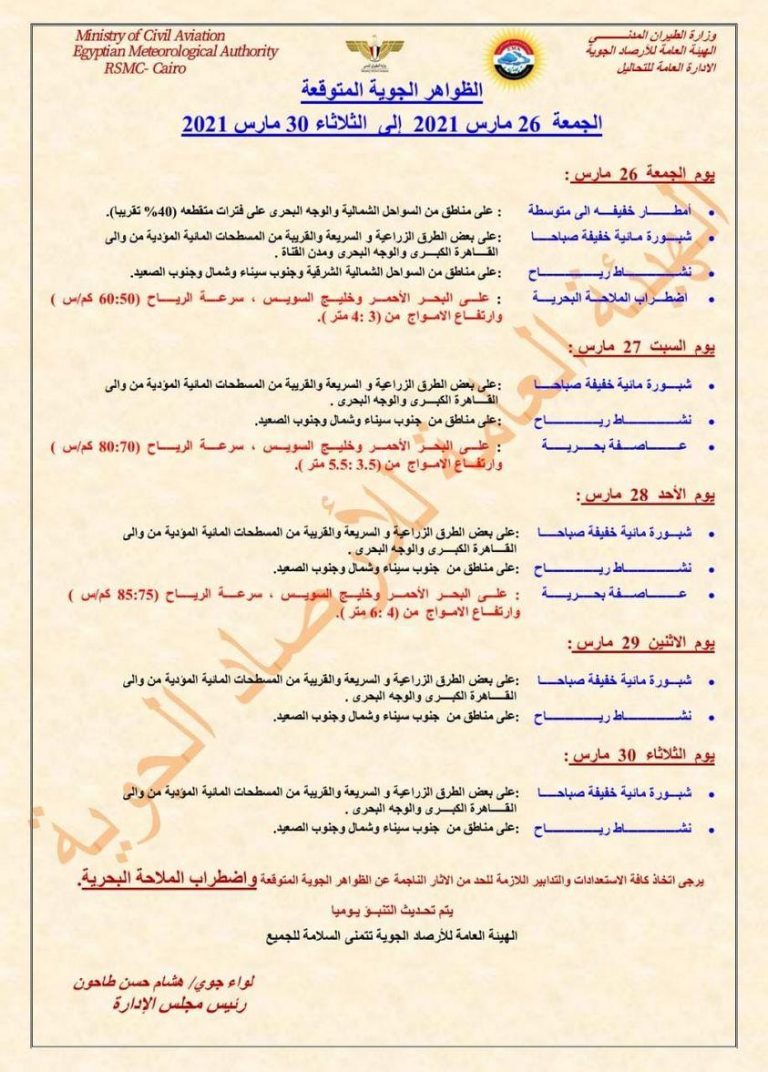 Ministry of Civil Aviation
Egyptian Meteorological Authority
RSMC- Cairo
وزارة الطيران المدنـــــي
الهيئة العامة للأرصاد الجوية
الادارة العامة للتحاليل
الظواهر الجوية المتوقعة
الجمعة 26 مارس 2021 إلى الثلاثاء 30 مارس 2021
يوم الجمعة 26 مارس :
• أمطـــار خفيفـــه الى متوسطة : على مناطق من السواحل الشمالية والوجه البحرى على فترات متقطعه (40% تقريبا).
• شبـــورة مـائية خفيفة صباحـــا :على بعض الطرق الزراعية و السريعة والقريبة من المسطحات المائية المؤدية من والى
القــاهرة الكبـــرى والوجه البحرى ومدن القناة .
• نشـــــاط ريـــــاح :على مناطق من السواحل الشمالية الشرقية وجنوب سيناء وشمال وجنوب الصعيد.
• اضطـــراب الملاحـــة البحريـــة : علـــى البحـــر الأحمـــر وخليـــج السويـــس ، سرعـــة الريـــاح (60:50 كم/س )
وارتفـــاع الامـواج من (3 :4 متر ).
يوم السبت 27 مارس :
• شبـــورة مائية خفيفة صباحـــا :على بعض الطرق الزراعية و السريعة والقريبة من المسطحات المائية المؤدية من والى
القـــاهرة الكبـــرى والوجه البحرى .
• نشـــــاط ريـــــاح :على مناطق من جنوب سيناء وشمال وجنوب الصعيد.
• عـــــاصـــفة بحـــريـــة : علـــى البحـــر الأحمـــر وخليـــج السويـــس ، سرعـــة الريـــاح (80:70 كم/س )
وارتفـــاع الامـواج من (3.5 :5.5 متر ).
يوم الأحد 28 مارس :
• شبـــورة مائية خفيفة صباحـــا :على بعض الطرق الزراعية و السريعة والقريبة من المسطحات المائية المؤدية من والى
القـــاهرة الكبـــرى والوجه البحرى .
• نشـــــاط ريـــــاح :على مناطق من جنوب سيناء وشمال وجنوب الصعيد.
• عـــــاصـــفة بحـــريـــة : علـــى البحـــر الأحمـــر وخليـــج السويـــس ، سرعـــة الريـــاح (85:75 كم/س )
وارتفـــاع الامـواج من (4 :6 متر ).
يوم الاثنين 29 مارس :
• شبـــورة مائية خفيفة صباحـــا :على بعض الطرق الزراعية و السريعة والقريبة من المسطحات المائية المؤدية من والى
القـــاهرة الكبـــرى والوجه البحرى .
• نشـــــاط ريـــــاح :على مناطق من جنوب سيناء وشمال وجنوب الصعيد.
يوم الثلاثاء 30 مارس :
• شبـــورة مائية خفيفة صباحـــا :على بعض الطرق الزراعية و السريعة والقريبة من المسطحات المائية المؤدية من والى
القـــاهرة الكبـــرى والوجه البحرى .
• نشـــــاط ريـــــاح :على مناطق من جنوب سيناء وشمال وجنوب الصعيد.
يرجى اتخاذ كافة الاستعدادات والتدابير اللازمة للحد من الاثار الناجمة عن الظواهر الجوية المتوقعة واضطراب الملاحة البحرية.
يتم تحديث التنبـــؤ يـوميا
الهيئة العامة للأرصاد الجوية تتمنى السلامة للجميع
لواء جوي/ هشام حسن طاحون
رئيس مجلس الإدارة
الهيئة العامة للأرصاد الجوية